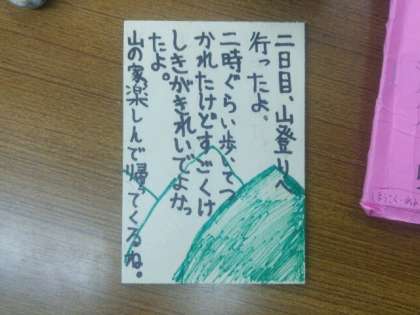 二日目、山登りへ
行ったよ。
二時ぐらい歩いてつ
かれたけどすごくけ
しきがきれいでよかっ
たよ。
山の家楽しんで帰ってくるね。